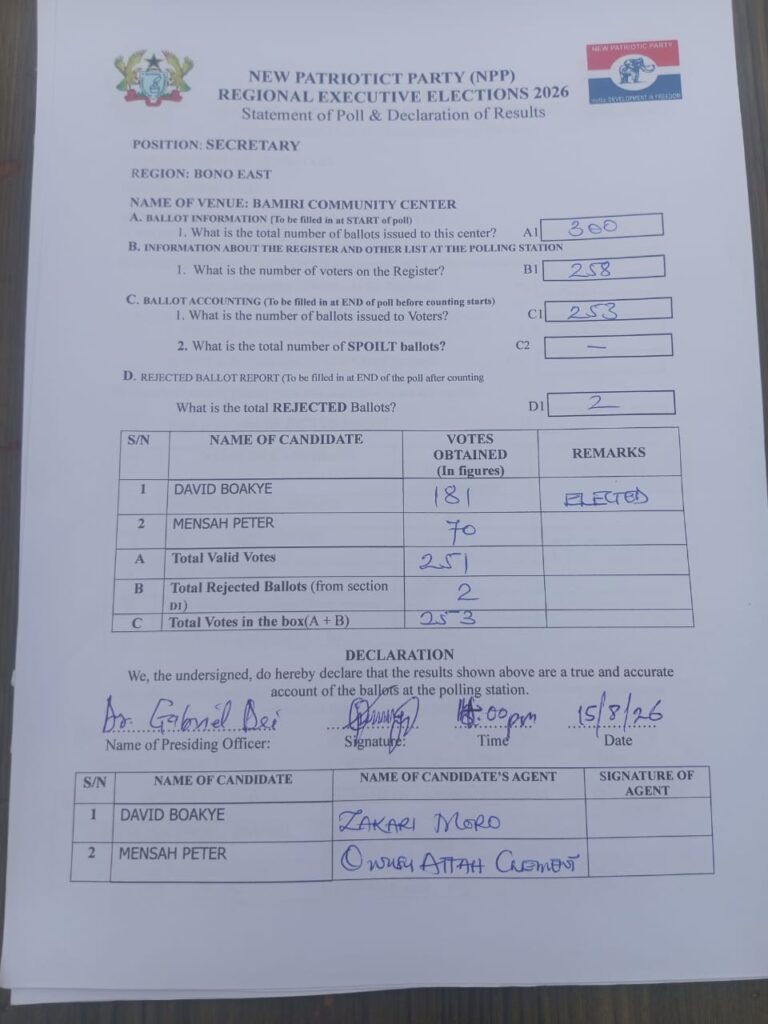 NEW PATRIOTIC PARTY
NEW PATRIOTICT PARTY (NPP)
REGIONAL EXECUTIVE ELECTIONS 2026
DEVELOPMENT IN FREEDOM
Statement of Poll & Declaration of Results
POSITION: SECRETARY
REGION: BONO EAST
NAME OF VENUE: BAMIRI COMMUNITY CENTER
A. BALLOT INFORMATION (To be filled in at START of poll)
1. What is the total number of ballots issued to this center? A1 300
B. INFORMATION ABOUT THE REGISTER AND OTHER LIST AT THE POLLING STATION
1. What is the number of voters on the Register? B1 258
C. BALLOT ACCOUNTING (To be filled in at END of poll before counting starts)
1. What is the number of ballots issued to Voters? C1 253
2. What is the total number of SPOILT ballots? C2 –
D. REJECTED BALLOT REPORT (To be filled in at END of the poll after counting
What is the total REJECTED Ballots? D1 2
S/N NAME OF CANDIDATE VOTES OBTAINED (In figures) REMARKS
1 DAVID BOAKYE 181 ELECTED
2 MENSAH PETER 70
A Total Valid Votes 251
B Total Rejected Ballots (from section D1) 2
C Total Votes in the box(A + B) 253
DECLARATION
We, the undersigned, do hereby declare that the results shown above are a true and accurate
account of the ballots at the polling station.
Dr. Gabriel :00pm 15/8/26
Name of Presiding Officer: Signature: Time Date
S/N NAME OF CANDIDATE NAME OF CANDIDATE'S AGENT SIGNATURE OF AGENT
1 DAVID BOAKYE ZAKARI MORO
2 MENSAH PETER ATTAH CLEMENT